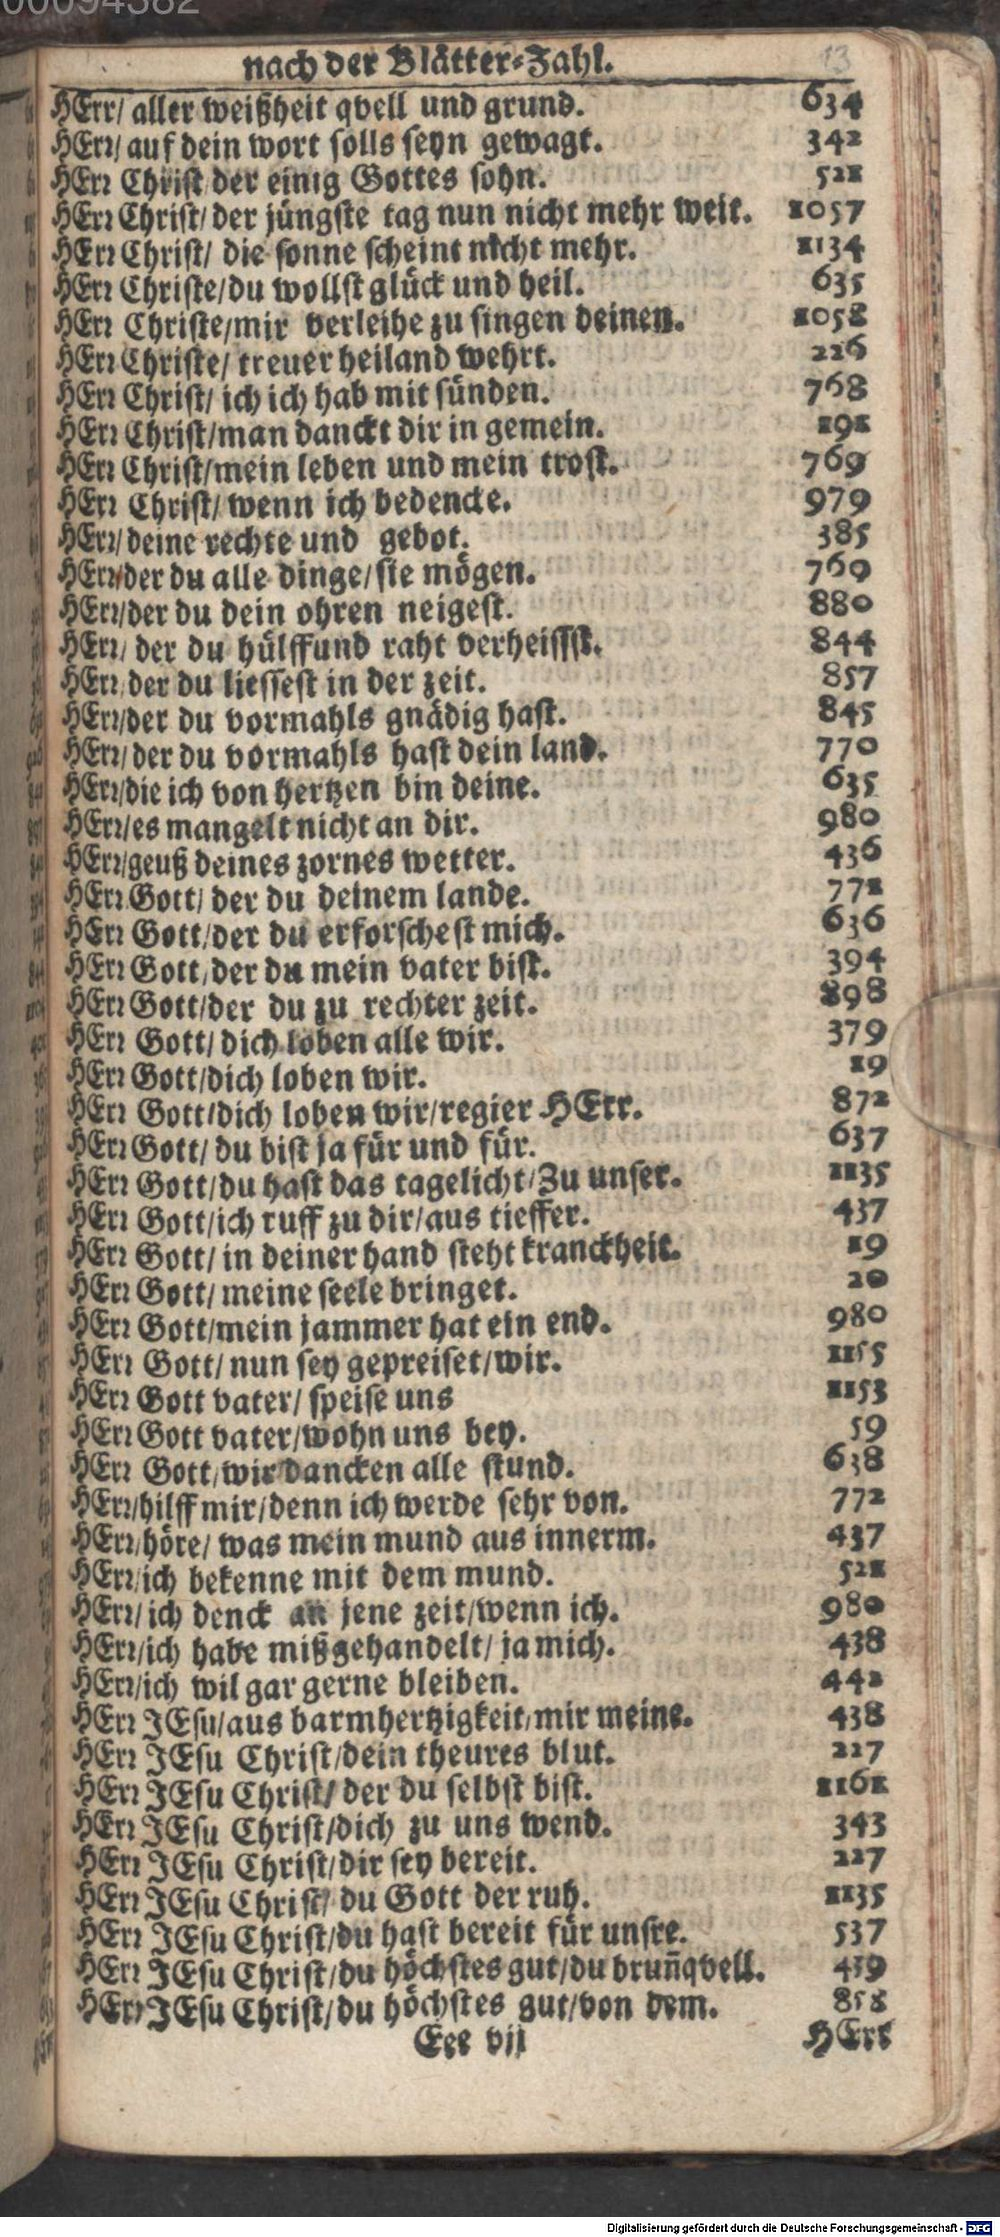 00094382
nach der Blätter-Zahl.
13
HErr/ aller weißheit qvell und grund. 634
HErr/ auf dein wort solls seyn gewagt. 342
HErr Christ der einig Gottes sohn. 521
HErr Christ/ der jüngste tag nun nicht mehr weit. 1057
HErr Christ/ die sonne scheint nicht mehr. 1134
HErr Christe/du wollst glück und heil. 635
HErr Christe/mir verleihe zu singen deinen. 1058
HErr Christe/ treuer heiland wehrt. 226
HErr Christ/ ich ich hab mit sünden. 768
HErr Christ/man danckt dir in gemein. 191
HErr Christ/mein leben und mein trost. 769
HErr Christ/ wenn ich bedencke. 979
HErr/deine rechte und gebot. 385
HErr/der du alle dinge/sie mögen. 769
HErr/der du dein ohren neigest. 880
HErr/ der du hülff und raht verheissst. 844
HErr/der du liessest in der zeit. 857
HErr/der du vormahls gnädig hast. 845
HErr/der du vormahls hast dein land. 770
HErr/die ich von hertzen bin deine. 635
HErr/es mangelt nicht an dir. 980
HErr/geuß deines zornes wetter. 436
HErr Gott/ der du deinem lande. 771
HErr Gott/der du erforschest mich. 636
HErr Gott/der du mein vater bist. 394
HErr Gott/der du zu rechter zeit. 898
HErr Gott/ dich loben alle wir. 379
HErr Gott/dich loben wir. 19
HErr Gott/dich loben wir/regier HErr. 872
HErr Gott/ du bist ja für und für. 637
HErr Gott/du hast das tagelicht/Zu unser. 1135
HErr Gott/ich ruff zu dir/aus tieffer. 437
HErr Gott/ in deiner hand steht kranckheit. 19
HErr Gott/ meine seele bringet. 20
HErr Gott/mein jammer hat ein end. 980
HErr Gott/ nun sey gepreiset/wir. 1155
HErr Gott vater/ speise uns 1153
HErr Gott vater/wohn uns bey. 59
HErr Gott/wir dancken alle stund. 638
HErr/hilff mir/denn ich werde sehr von. 772
HErr/höre/ was mein mund aus innerm. 437
HErr/ich bekenne mit dem mund. 521
HErr/ ich denck an jene zeit/wenn ich. 980
HErr/ich habe mißgehandelt/ ja mich. 438
HErr/ich wil gar gerne bleiben. 442
HErr JEsu/aus barmhertzigkeit/mir meine. 438
HErr JEsu Christ/dein theures blut. 227
HErr JEsu Christ/ der du selbst bist. 1161
HErr JEsu Christ/dich zu uns wend. 343
HErr JEsu Christ/dir sey bereit. 227
HErr JEsu Christ/ du Gott der ruh. 1135
HErr JEsu Christ/du hast bereit für unsre. 537
HErr JEsu Christ/du höchstes gut/du brun̄qvell. 439
HErr JEsu Christ/du höchstes gut/von dem. 858
Eee vij HErr
Digitalisierung gefördert durch die Deutsche Forschungsgemeinschaft - DFG